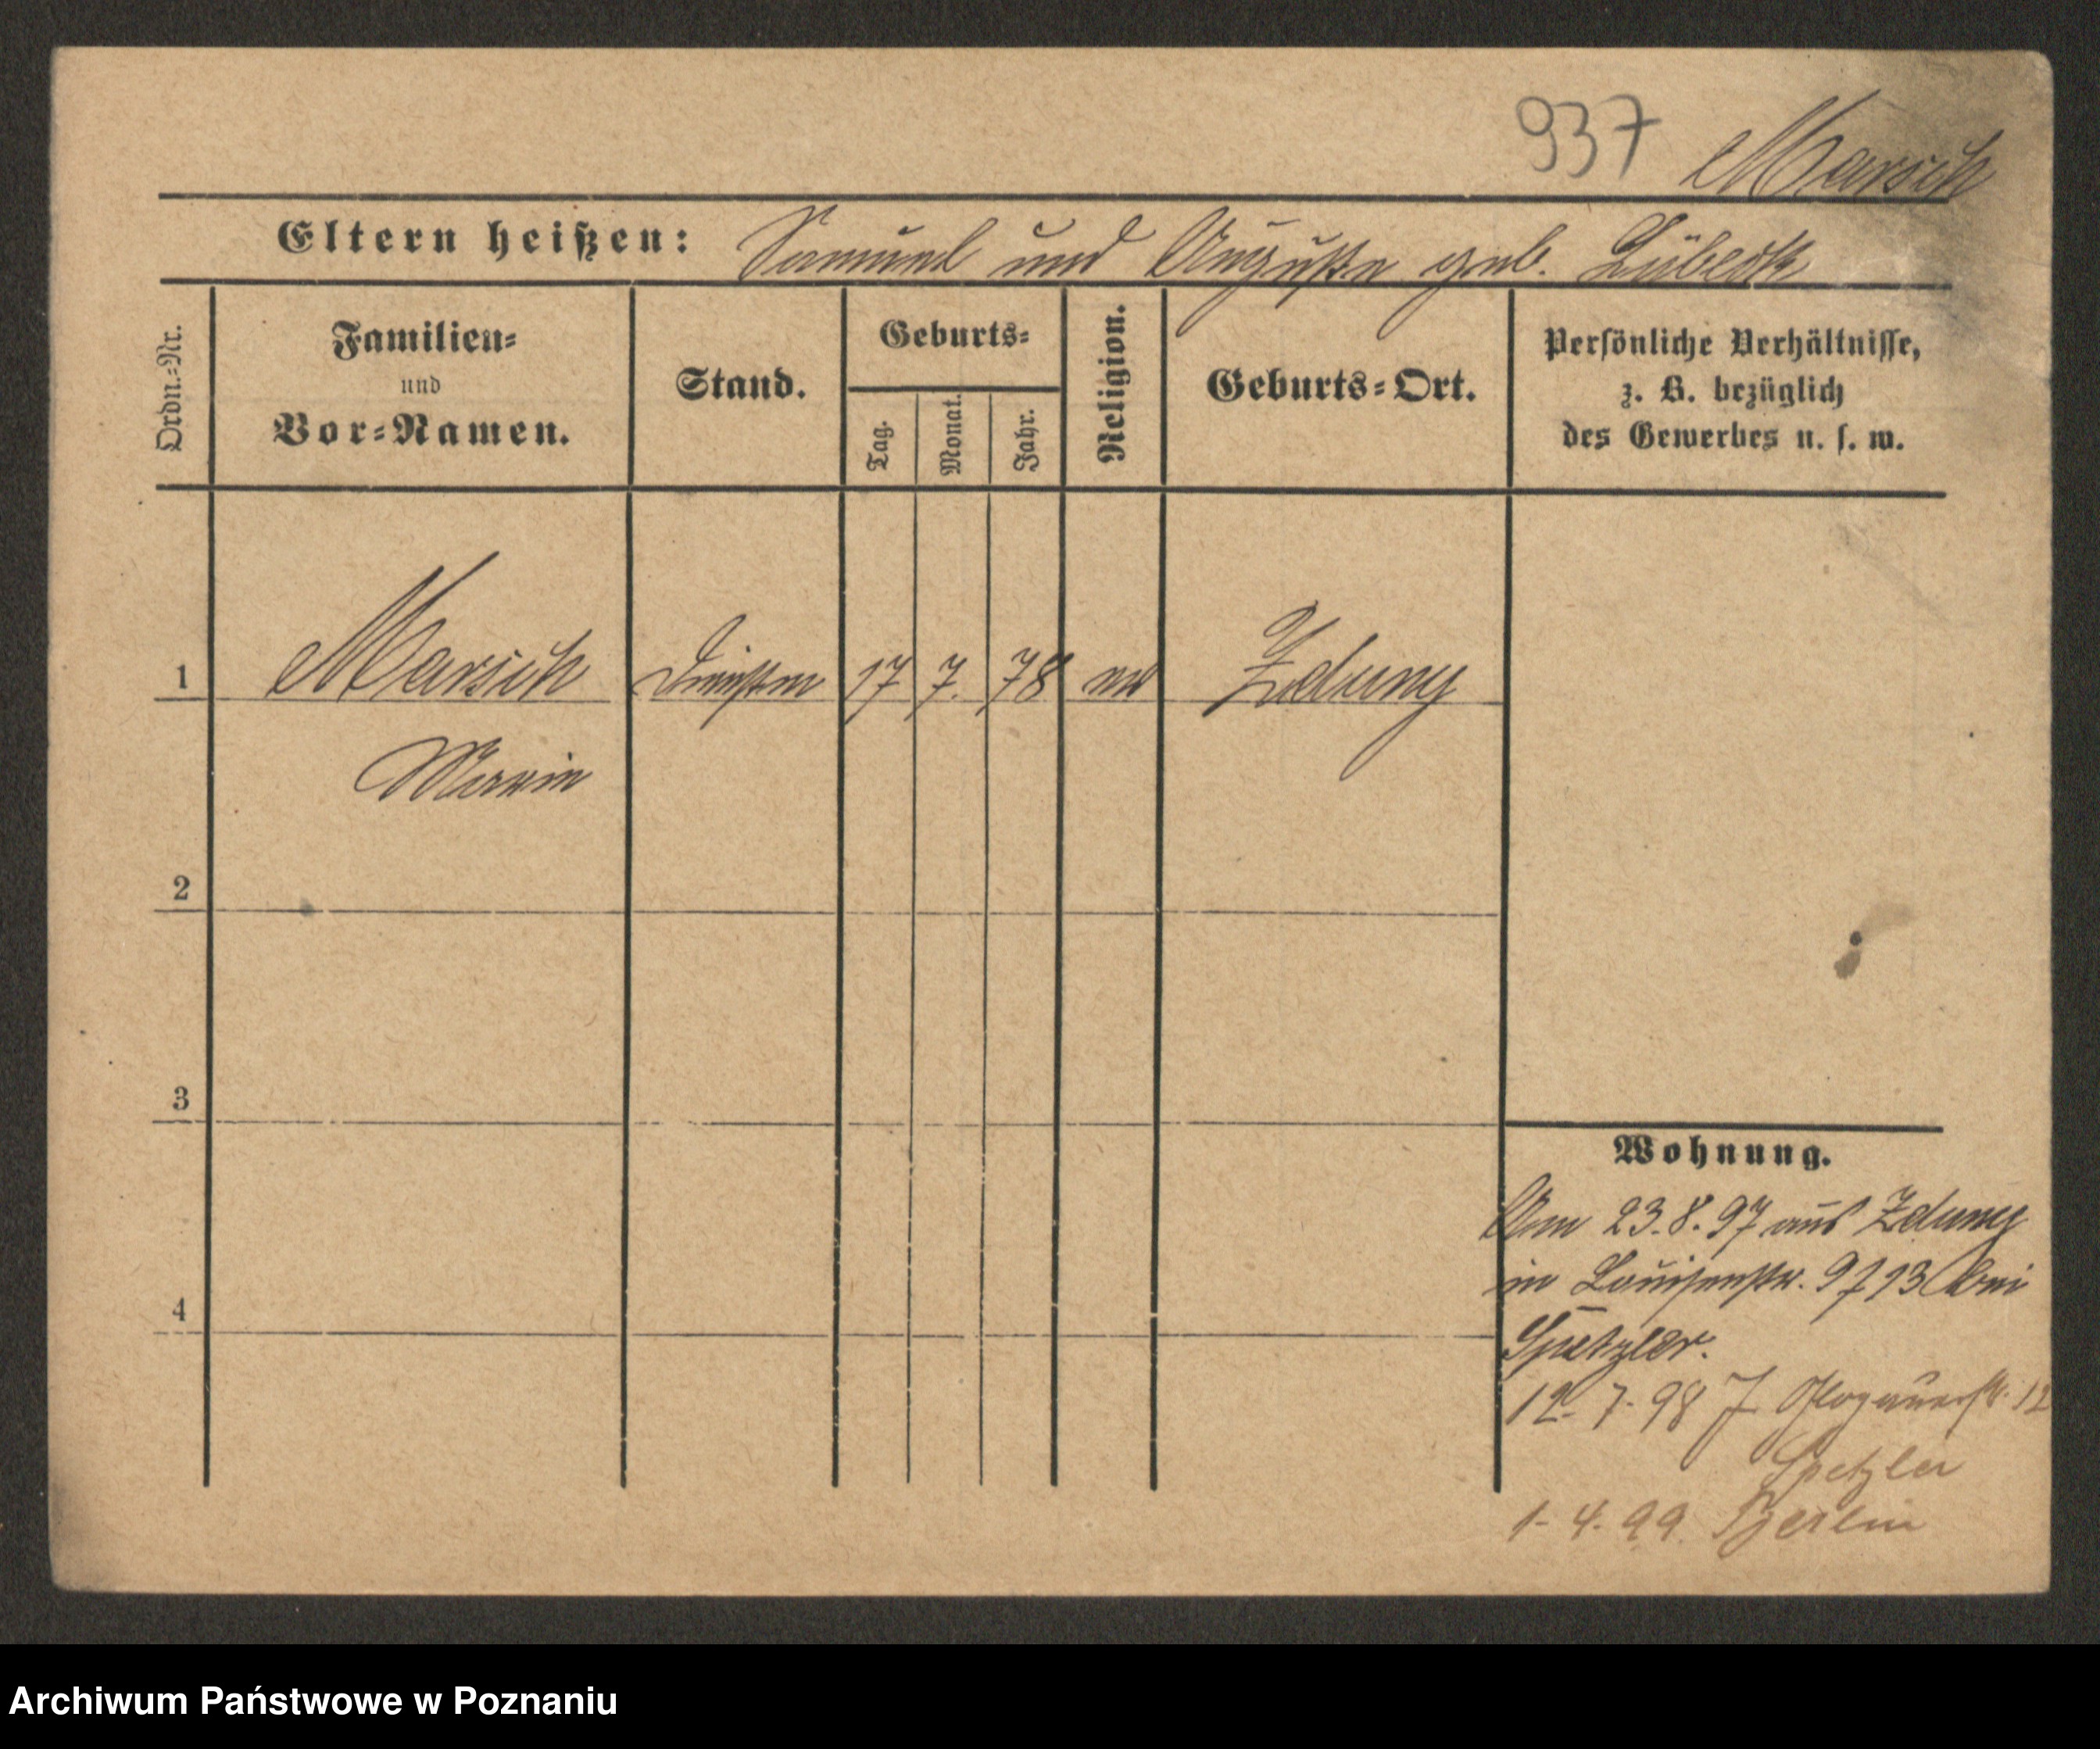 937 Marsch
Eltern heißen: Samuel und Auguste geb. Lübeck
Ordn.-Nr.
Familien-
und
Vor-Namen.
Stand.
Geburts-
Tag.
Monat.
Jahr.
Religion.
Geburts-Ort.
Persönliche Verhältnisse,
z. B. bezüglich
des Gewerbes u. s. w.
1 Marsch 17 7. 78 ev Zduny
2
3
4
Wohnung.
Am 23.8.97 aus Zduny
in Louisenstr. bei
Spetzler.
12. 7. 98 Glogauerstr. 12
Spetzler
1. 4. 99. Berlin
Archiwum Państwowe w Poznaniu